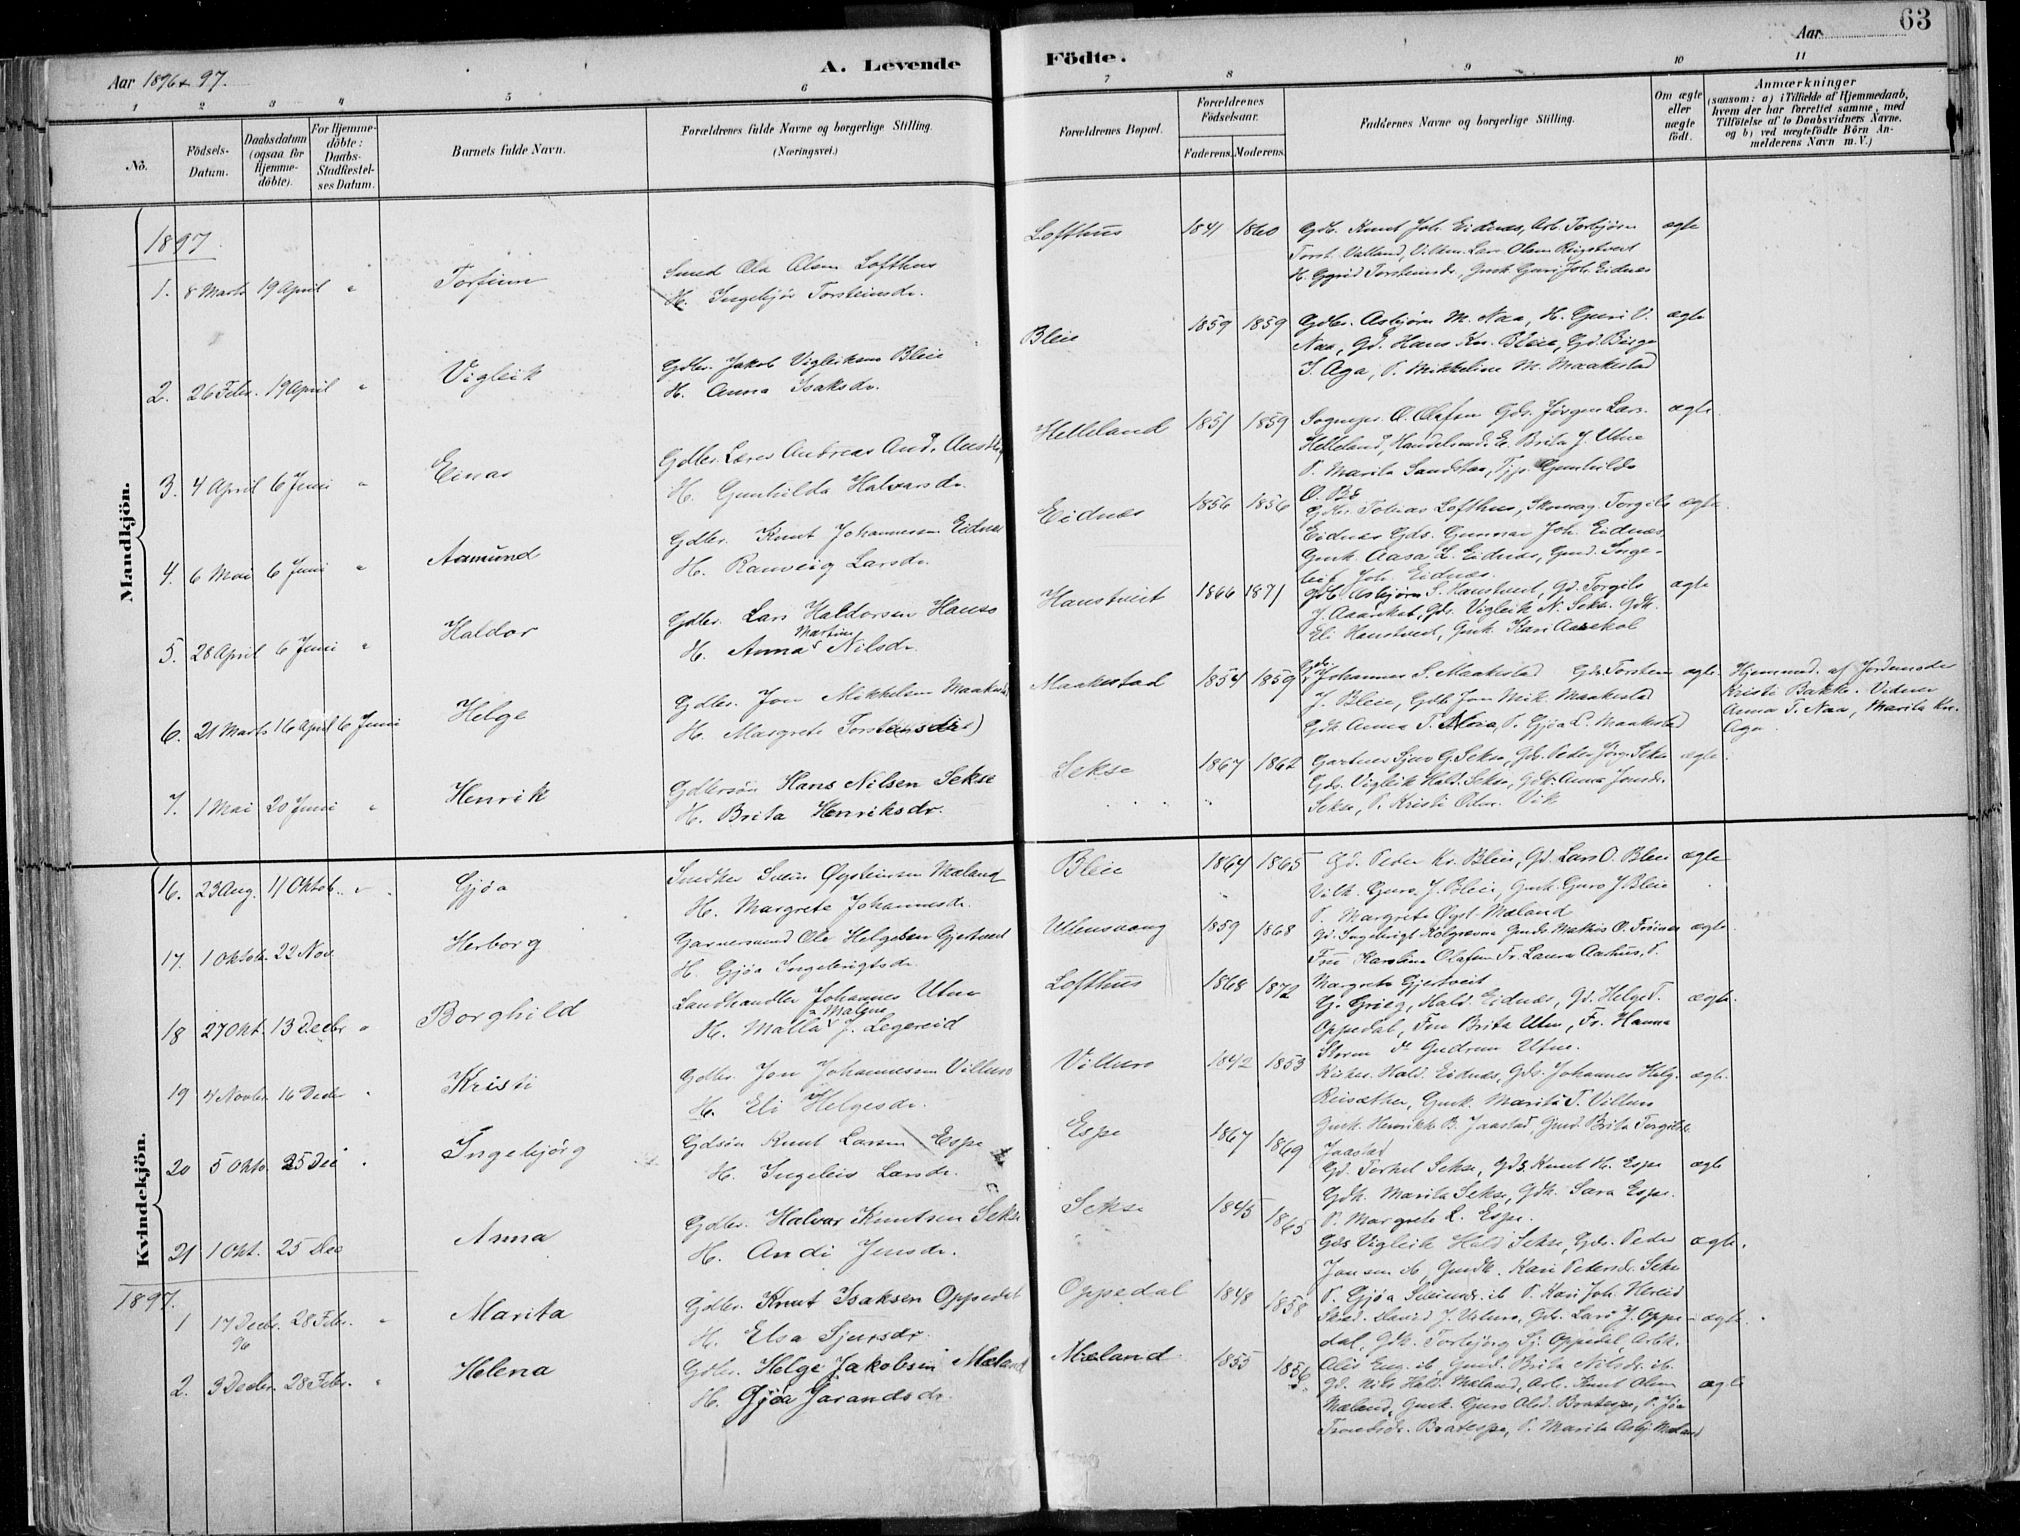 63
Aar 1896 & 97.
A. Levende Födte.
Aar
1 2 3 4 5 6 7 8 9 10 11
No.
Födsels-
Datum.
Daabsdatum
(ogsaa for
Hjemme-
döbte).
For Hjemme-
döbte:
Daabs-
Stadfæstel-
ses Datum.
Barnets fulde Navn.
Forældrenes fulde Navne og borgerlige Stilling.
(Næringsvei.)
Forældrenes Bopæl.
Forældrenes
Födselsaar.
Faderens. Moderens.
Faddernes Navne og borgerlige Stilling.
Om ægte
eller
uægte
födt.
Anmærkninger
(saasom: a) i Tilfælde af Hjemmedaab,
hvem der har forrettet samme, med
Tilföielse af to Daabsvidners Navne,
og b) ved uægtefödte Börn An-
melderens Navn m. V.)
Mandkjön.
1897
1. 8 Marts 19 April " Torfinn
Smed Ola Olsen Lofthus
H. Ingebjör Torsteinsdr.
Lofthus 1841 1860
Gdb. Knut Joh. Eidnes, Arb. Torbjørn
H. Sygrid Torsteinsdr, Gurk. Guri Joh. Eidnes
ægte
2. 26 Febr. 19 April " Vigleik
Gdbr. Jakob Vigleiksen Bleie
H. Anna Isaksdr.
Bleie 1859 1859
Gdbr. Asbjørn M. Naa, H. Guri V.
Naa, Gd. Hans Kn. Bleie, Gd. Birge
I. Aga, P. Mikkeline M. Maakestad
ægte
3. 4 April 6 Juni " Einar
Gdbr. Lærer Andreas And.
H. Gunhilda Halvarsdr.
Helleland 1851 1859
Sognepr. O. Olafsen Gdr. Jørgen Lars.
Helleland, Handelsmd. E. Brita J. Utne
P. Marita Sandstaa, Tjp. Gunhilda
O. Bö
ægte
4. 6 Mai 6 Juni " Aamund
Gdbr. Knut Johannessen Eidnes
H. Ranveig Larsdr.
Eidnes 1856 1856
Gdbr. Tobias Lofthus, Skomag. Torgils
Eidnes Gds. Gunnar Joh. Eidnes
Gurk. Aasa L. Eidnes, Gmd. Inge-
leif Joh. Eidnes.
ægte
5. 28 April 6 Juni " Haldor
Gdbr. Lars Haldorsen Hauso
H. Anna Martine Nilsdr.
Hanstveit 1866 1871
Gdb. Asbjørn S. Hanstveit, Gd. Torgils
J. Aaarekol, Gdr. Vigleik N. Sekse. Gdk.
Eli Hanstveit, Gurk. Kari Aarekol
ægte
6. 21 Marts 16 April 6 Juni Helge
Gdbr. Jon Mikkelsen Maakestad
H. Margrete Torsteinsdr.
Maakestad 1854 1859
Johannes S. Maakestad Gdr. Torstein
J. Bleie, Gdb. Jon Mik. Maakestad
Gdk Anna T. Bleie, P. Gjøa L. Maakestad
ægte
Hjemmed. af Jordemoder
Kristi Bakke. Vidner
Anna T. Naa, Marita Kn.
Aga.
7. 1 Mai 20 Juni " Henrik
Gdbrsøn Hans Nilsen Sekse
H. Brita Henriksdr.
Sekse 1867 1862
Gartner Sjur G. Sekse, Gdr. Peder Jørg. Sekse
Gdr. Vigleik Hald. Sekse, Gdk. Anna Jonsdr.
Sekse, P. Kristi Olsdr. Vik
ægte
Kvindekjön.
16. 23 Aug. 11 Oktob. " Gjøa
Snedker Øystensen Mæland
H. Margrete Johannesdr.
Bleie 1864 1865
Gd. Peder Kr. Bleie, Gd. Lars O. Bleie
Vilk. Guro J. Bleie, Gurk. Guro J Bleie
P. Margrete Øyst. Mæland
ægte
17. 1 Oktob. 22 Nov. Herborg
Garversvend Ole Helgesen Gjertveit
H. Gjøa Ingebrigtsdr.
Ullensvang 1859 1868
Gd. Ingebrigt Kolgrevne
Fru Karoline Olafsen Fr. Laura Aarhus, P.
Margrete Gjertveit
ægte
18 27 Okt. 13 Decbr " Borghild
Landhandler Johannes Utne
H. Malla Malene J. Legereid
Lofthus 1868 1872
G. Grieg, Hald. Eidnes, Gd. Helge T.
Oppedal, Fru Brita Utne, Fr. Hanna
Storm & Gudrun Utne.
ægte
19 4 Novbr 16 Decbr " Kristi
Gdbr. Jon Johannessen Villure
H. Eli Helgesdr.
Villure 1842 1853
Kirkes. Hald. Eidnes, Gdr. Johannes Helg.
Reisæther, Gurk. Marita T. Villure
Gurk. Henrikka B. Jaastad Gmd Brita Torgilsdr
Jaastad
ægte
20 5 Okto. 25 Dec " Ingebjørg
Gdsøn Knut Larsen Espe
H. Ingeleiv Larsdr.
Espe 1867 1869
Gd. Torkel Sekse, Gds. Knut H. Espe
Gdk. Marita Sekse, Gdk. Sara Espe.
P. Margrete L. Espe.
ægte
21 1 Okt. 25 Dec Anna
Gdbr. Halvar Knutsen Sekse
H. Andi Jensdr.
Sekse 1845 1865
Gds Vigleik Hald Sekse, Gdr. Peder
Jonsen ib, Gmdk. Kari Petersdr. Sekse
P. Gjøa ib P. Kari Joh. Hereid
ægte
1897.
1 17 Decbr. 96 28 Febr. " Marita
Gdbr. Knut Isaksen Oppedal
H. Elsa Sjursdr.
Oppedal 1848 1858
Skrd. David J. Villure, Gdr. Lars J. Oppe-
dal, Gdk. Torbjørg Sj. Oppedal, Arbk.
Gmd. Brita Nilsdr. ib.
ægte
2. 3 Decbr. 28 Febr. " Helena
Gdbr. Helge Jakobsen Mæland
H. Gjøa Jarandsdr.
Mæland 1855 1856
Gd. Nils Hald. Mæland, Arb. Knut Olsen
Mæland, Gurk. Guro Olsd. Bratespe, P. Jøa
Tronddr. Bratespe, P. Marita Asbj. Mæland
ægte